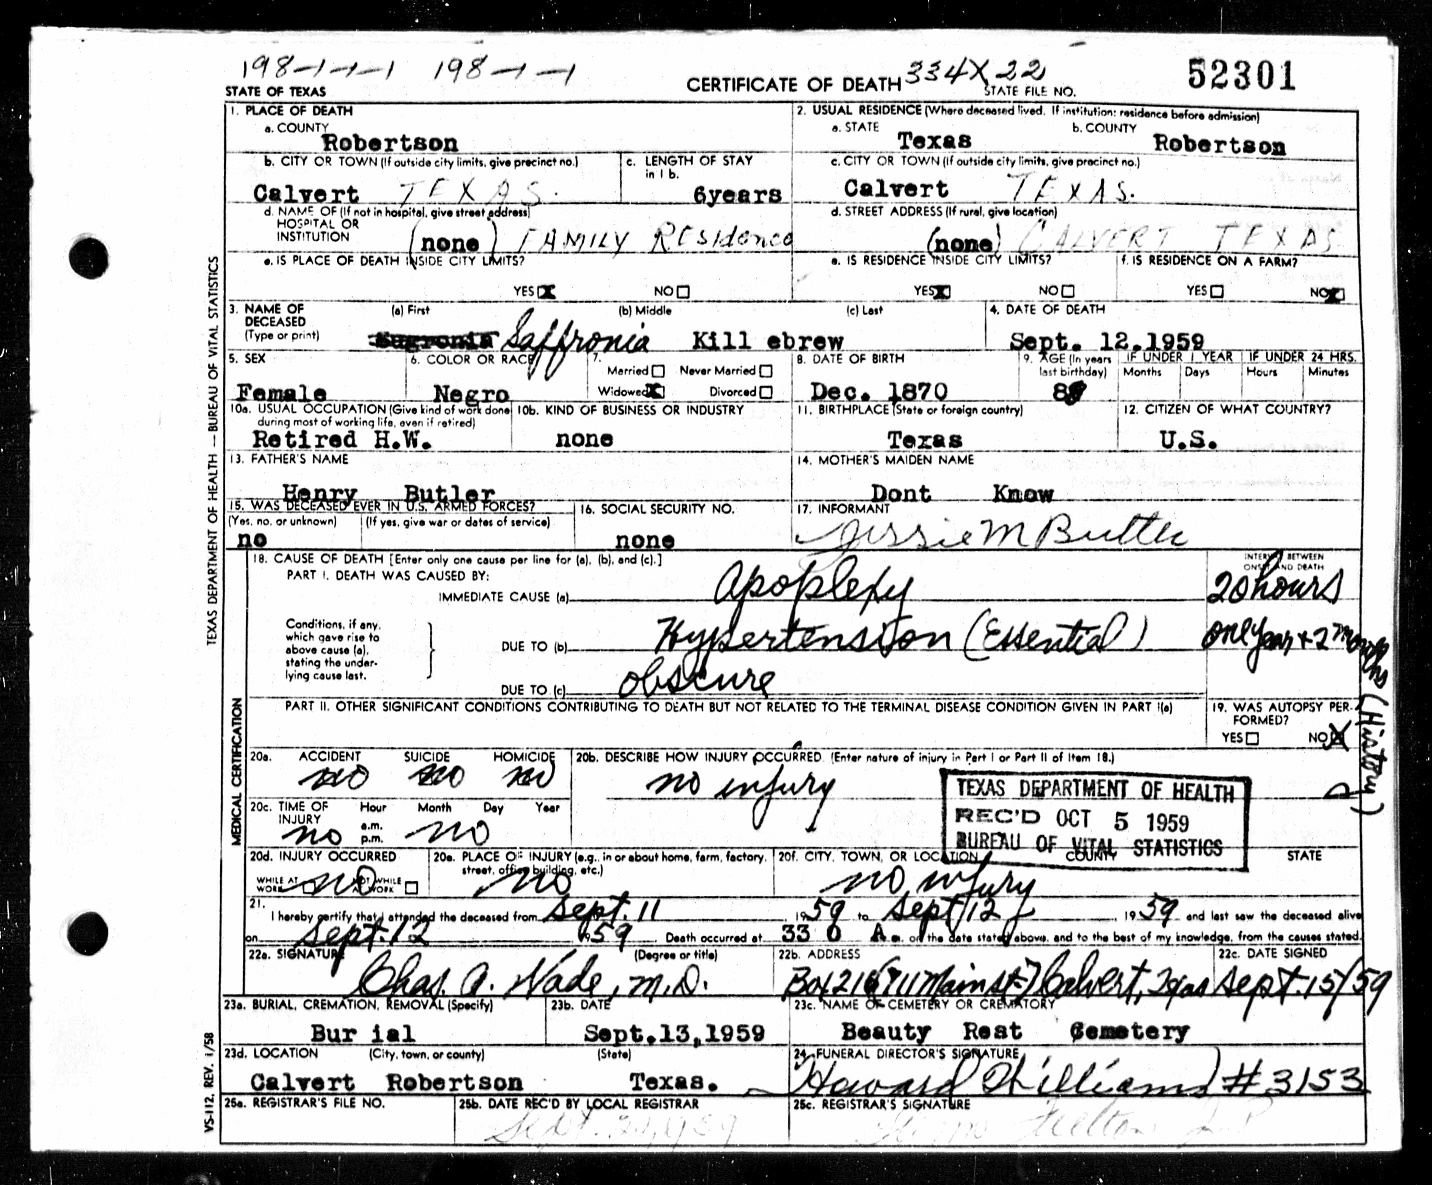 198-1-1-1 198-1-1
STATE OF TEXAS CERTIFICATE OF DEATH 334X22 STATE FILE NO. 52301
1. PLACE OF DEATH
a. COUNTY
Robertson
2. USUAL RESIDENCE (Where deceased lived. If institution: residence before admission)
a. STATE Texas b. COUNTY Robertson
b. CITY OR TOWN (If outside city limits, give precinct no.)
Calvert TEXAS.
c. LENGTH OF STAY in 1 b.
6years
c. CITY OR TOWN (If outside city limits, give precinct no.)
Calvert TEXAS.
d. NAME OF (If not in hospital, give street address)
HOSPITAL OR
INSTITUTION (none) FAMILY Residence
d. STREET ADDRESS (If rural, give location)
(none) CALVERT TEXAS
e. IS PLACE OF DEATH INSIDE CITY LIMITS?
YES X NO
e. IS RESIDENCE INSIDE CITY LIMITS?
YES X NO
f. IS RESIDENCE ON A FARM?
YES NO X
3. NAME OF DECEASED
(Type or print)
(a) First (b) Middle (c) Last
Saffronia Kill ebrew
4. DATE OF DEATH
Sept. 12,1959
5. SEX
Female
6. COLOR OR RACE
Negro
7.
Married Never Married
Widowed X Divorced
8. DATE OF BIRTH
Dec. 1870
9. AGE (In years last birthday)
IF UNDER 1 YEAR IF UNDER 24 HRS.
Months Days Hours Minutes
10a. USUAL OCCUPATION (Give kind of work done during most of working life, even if retired)
Retired H.W.
10b. KIND OF BUSINESS OR INDUSTRY
none
11. BIRTHPLACE (State or foreign country)
Texas
12. CITIZEN OF WHAT COUNTRY?
U.S.
13. FATHER'S NAME
Henry Butler
14. MOTHER'S MAIDEN NAME
Dont Know
15. WAS DECEASED EVER IN U.S. ARMED FORCES?
(Yes, no, or unknown) (If yes, give war or dates of service)
no
16. SOCIAL SECURITY NO.
none
17. INFORMANT
Jessie M Butler
18. CAUSE OF DEATH [Enter only one cause per line for (a), (b), and (c).]
PART I. DEATH WAS CAUSED BY:
IMMEDIATE CAUSE (a) Apoplexy
INTERVAL BETWEEN ONSET AND DEATH
20 hours
Conditions, if any, which gave rise to above cause (a), stating the underlying cause last.
DUE TO (b) Hypertension (Essential) one year + 2 months (History)
DUE TO (c) obscure
PART II. OTHER SIGNIFICANT CONDITIONS CONTRIBUTING TO DEATH BUT NOT RELATED TO THE TERMINAL DISEASE CONDITION GIVEN IN PART I(a)
19. WAS AUTOPSY PERFORMED?
YES NO X
20a. ACCIDENT SUICIDE HOMICIDE
no no no
20b. DESCRIBE HOW INJURY OCCURRED. (Enter nature of injury in Part I or Part II of Item 18.)
no injury
20c. TIME OF INJURY Hour Month Day Year
no a.m. p.m. no
TEXAS DEPARTMENT OF HEALTH
REC'D OCT 5 1959
BUREAU OF VITAL STATISTICS
20d. INJURY OCCURRED
WHILE AT WORK NOT WHILE AT WORK
no
20e. PLACE OF INJURY (e.g., in or about home, farm, factory, street, office building, etc.)
no
20f. CITY, TOWN, OR LOCATION COUNTY STATE
no injury
21.
I hereby certify that I attended the deceased from Sept. 11, 1959 to Sept 12, 1959 and last saw the deceased alive
on Sept. 12 1959 Death occurred at 33 0 A m. on the date stated above, and to the best of my knowledge, from the causes stated.
22a. SIGNATURE (Degree or title)
Chas. A. Wade, M.D.
22b. ADDRESS
Box 216 (711 Main St.) Calvert, Texas
22c. DATE SIGNED
Sept. 15/59
23a. BURIAL, CREMATION, REMOVAL (Specify)
Bur ial
23b. DATE
Sept.13,1959
23c. NAME OF CEMETERY OR CREMATORY
Beauty Rest Cemetery
23d. LOCATION (City, town, or county) (State)
Calvert Robertson Texas.
24. FUNERAL DIRECTOR'S SIGNATURE
Howard Williams #3153
25a. REGISTRAR'S FILE NO.
25b. DATE REC'D BY LOCAL REGISTRAR
25c. REGISTRAR'S SIGNATURE
TEXAS DEPARTMENT OF HEALTH — BUREAU OF VITAL STATISTICS
MEDICAL CERTIFICATION
VS-112, REV. 1/58